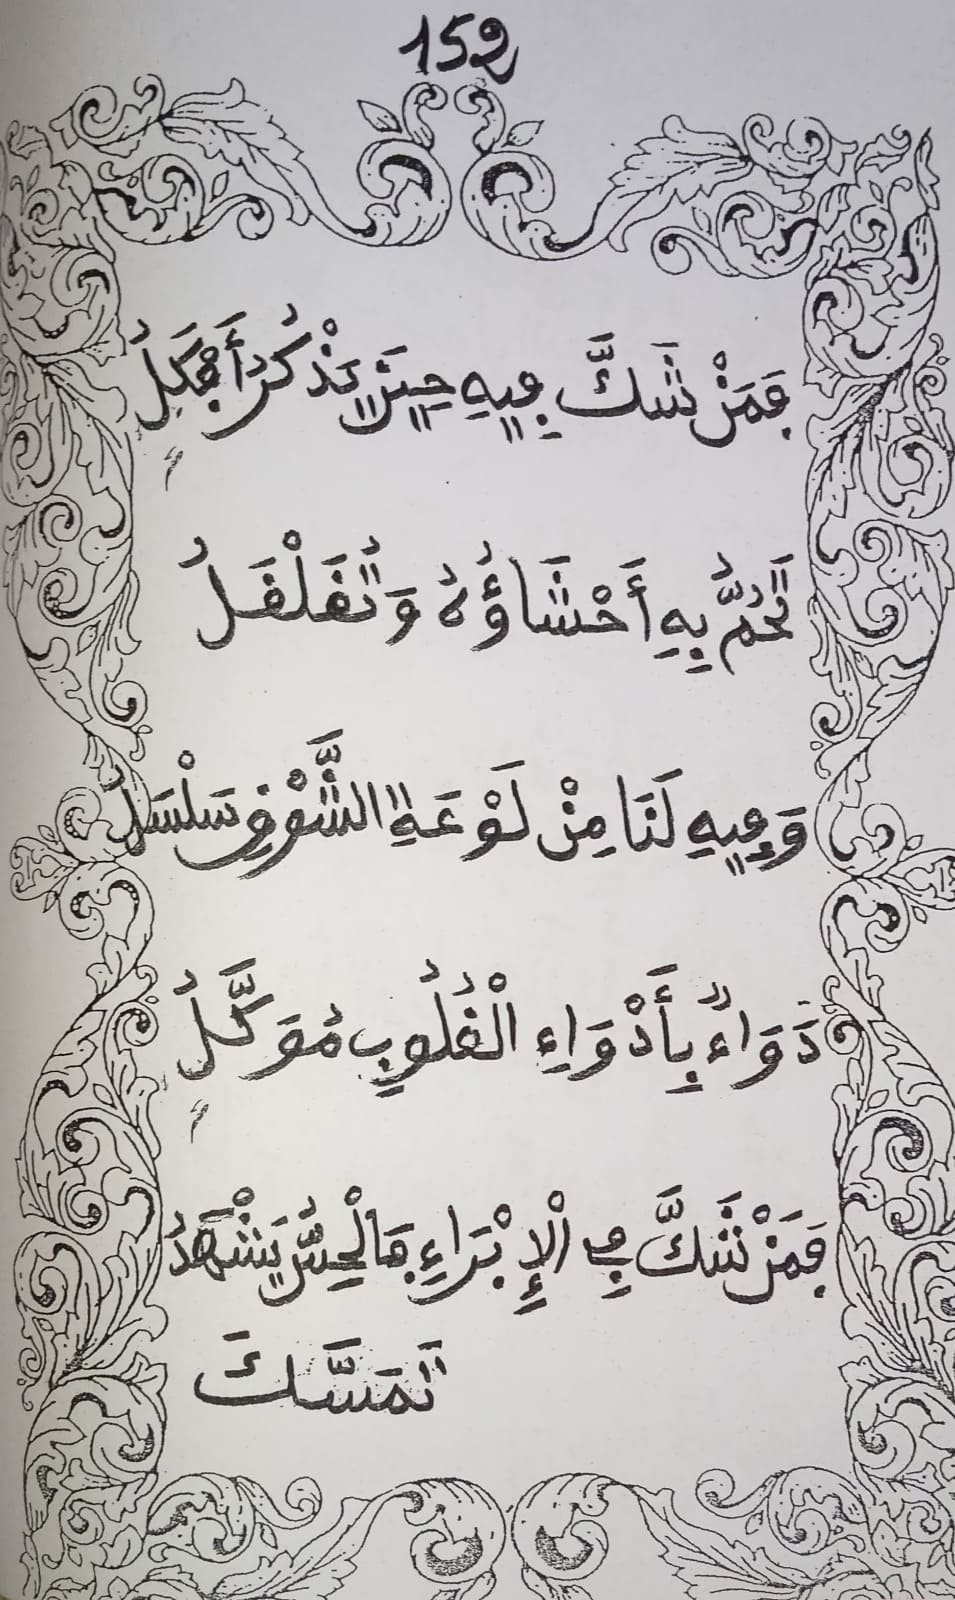 152
فَمَنْ شَكَّ فِيهِ حِينَ يَذْكُرُ
تَحُمُّ بِهِ أَحْشَاؤُهُ وَتُقَلْقَلُ
وَفِيهِ لَنَا مِنْ لَوْعَةِ الشَّوْقِ سَلْسَلُ
دَوَاءٌ بِأَدْوَاءِ الْقُلُوبِ مُوَكَّلُ
فَمَنْ شَكَّ فِي الْإِبْرَاءِ فَالْحِسُّ يَشْهَدُ
تَمَسَّكَ